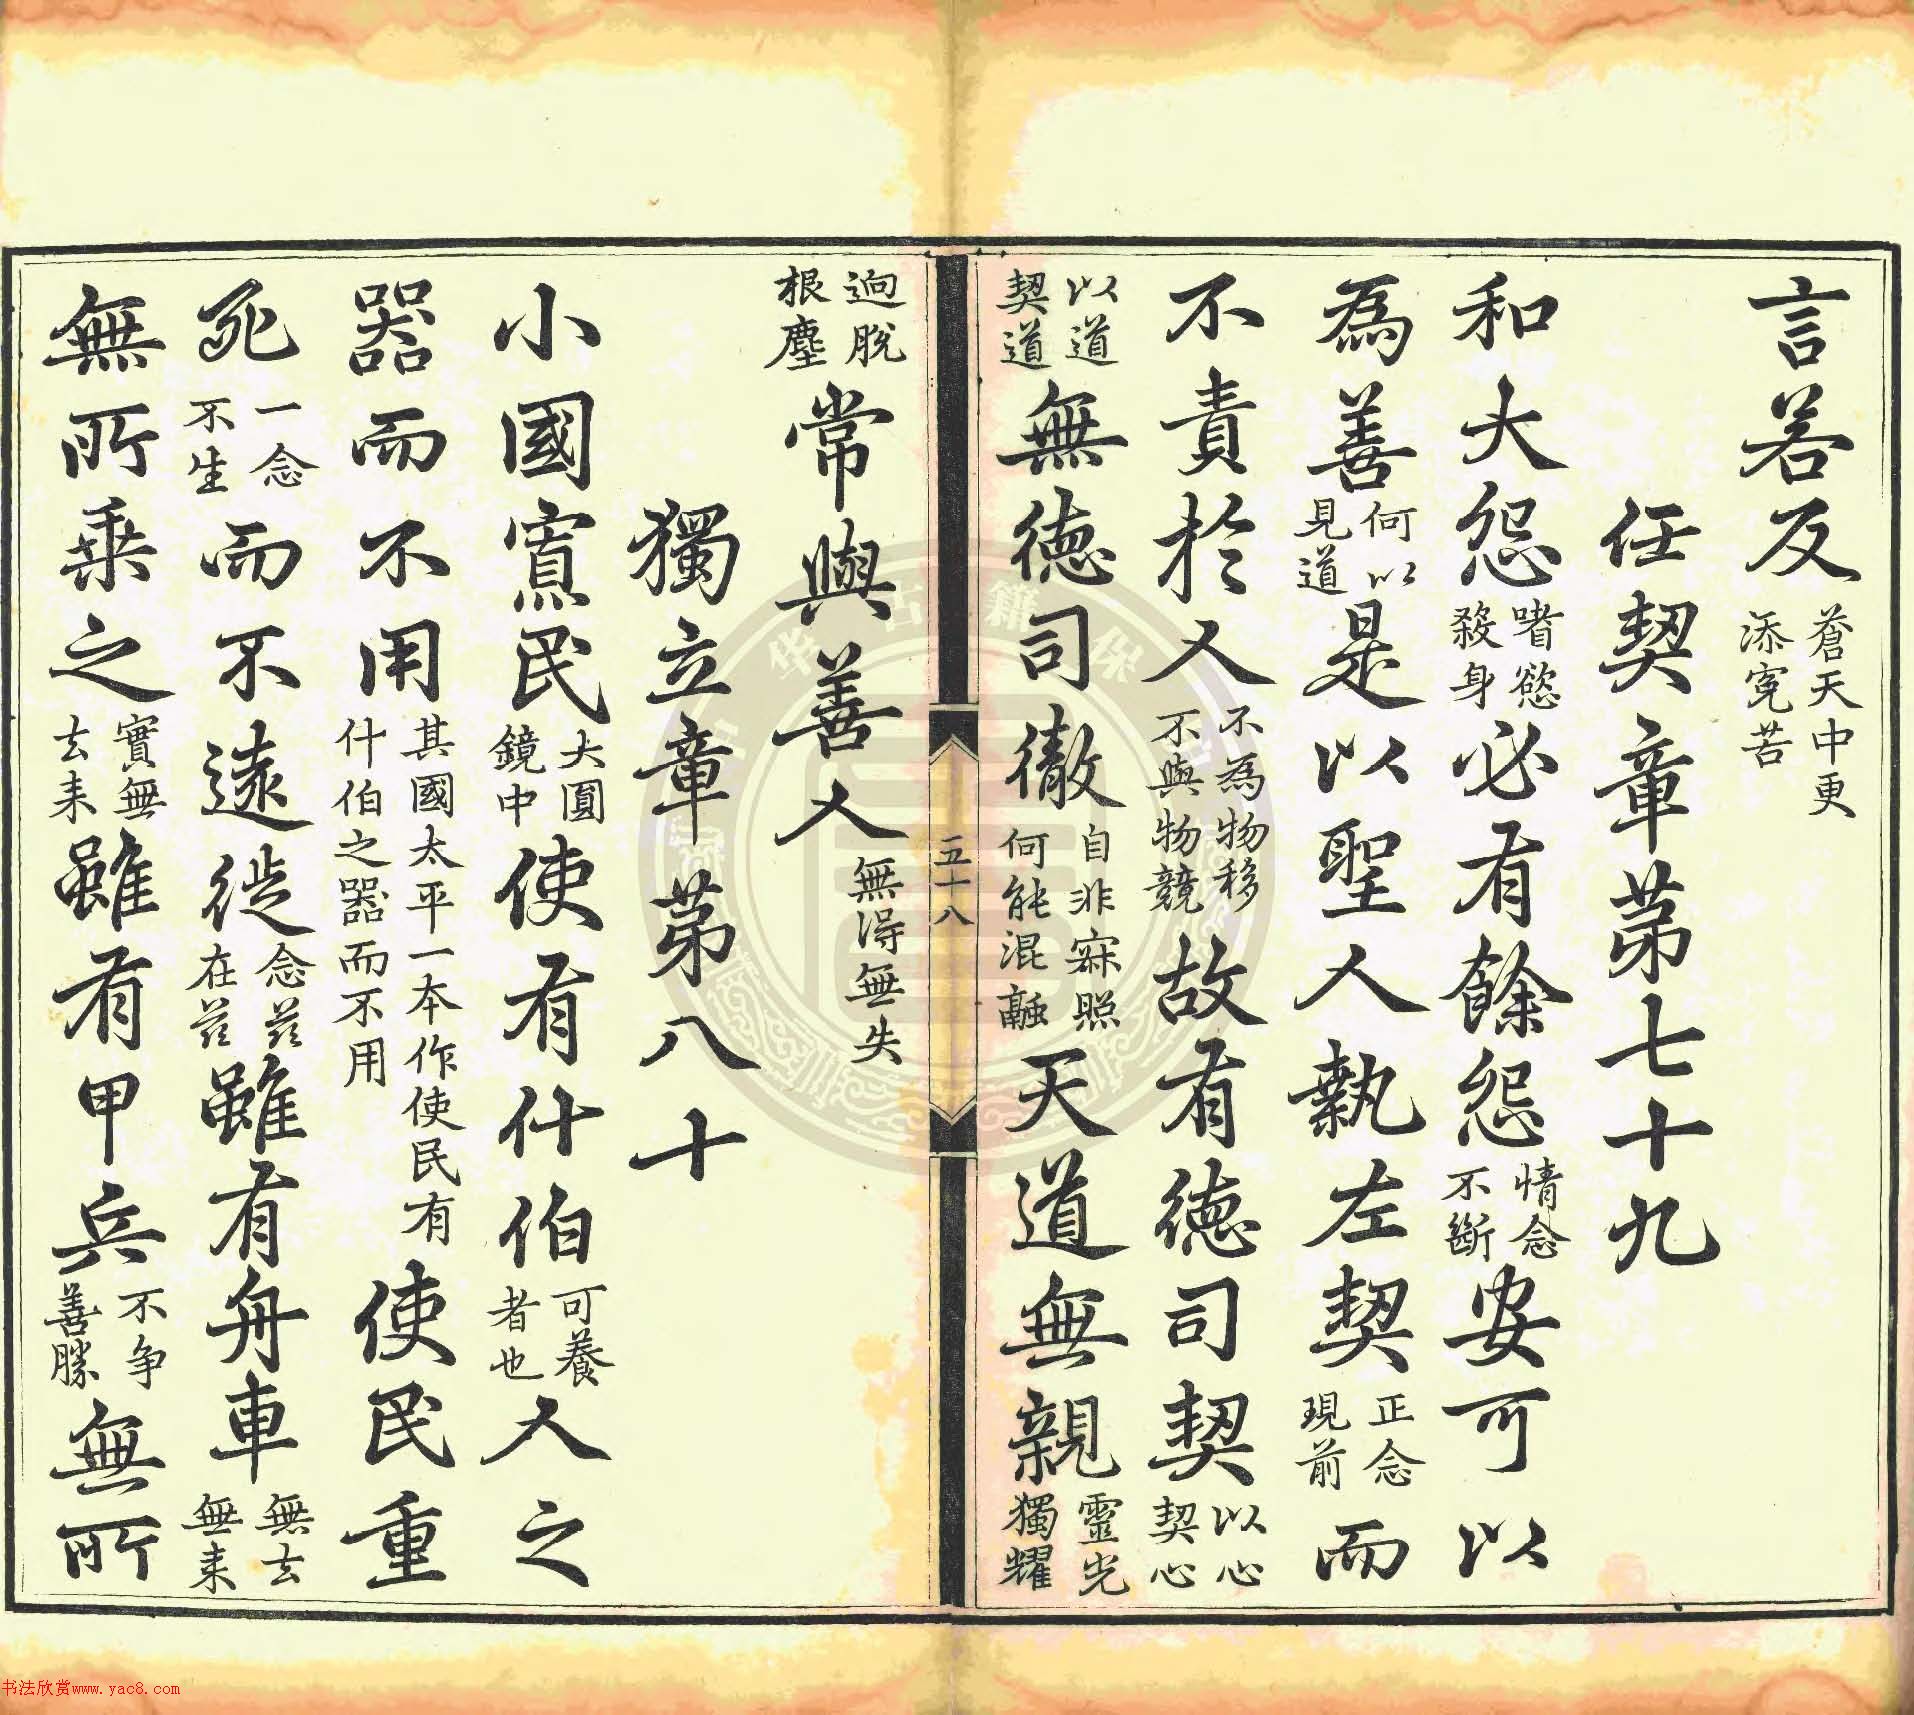 言若反蒼天中更添寃苦
任契章第七十九
和大怨嗜慾殺身必有餘怨情念不斷安可以
為善何以見道是以聖人執左契正念現前而
不責於人不為物移不與物競故有德司契以心契心
以道契道無德司徹自非寂照何能混融天道無親靈光獨耀
五十八
迥脫根塵常與善人無得無失
獨立章第八十
小國寡民大圓鏡中使有什伯可養者也人之
器而不用其國太平一本作使民有什伯之器而不用使民重
死一念不生而不遠徙念茲在茲雖有舟車無去無来
無所乘之實無去来雖有甲兵不争善勝無所
书法欣赏www.yac8.com